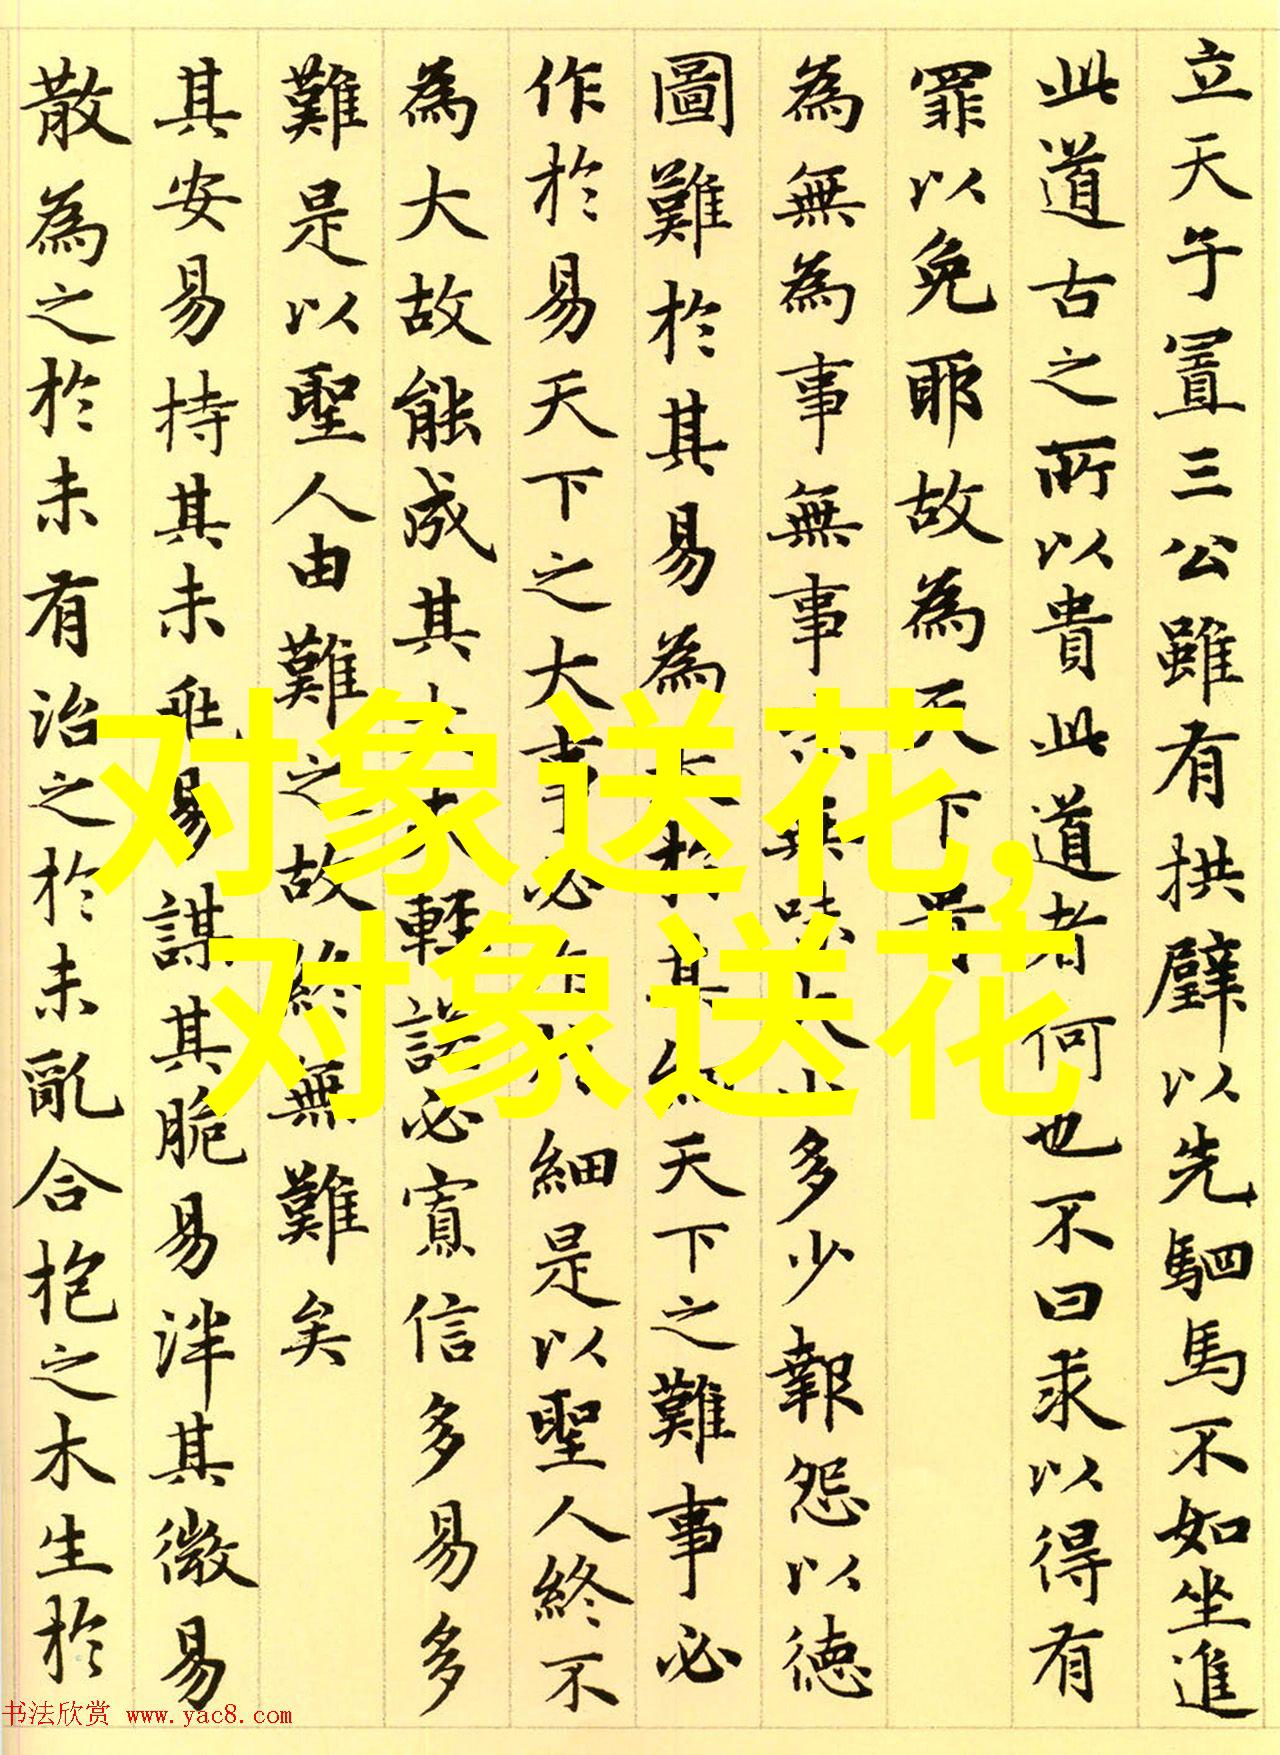 立天子置三公雖有拱璧以先駟馬不如坐進
此道古之所以貴此道者何也不曰求以得有
罪以免耶故為天下貴
為無為事無事味無味大小多少報怨以德
圖難於其易為大於其細天下之難事必
作於易天下之大事必作於細是以聖人終不
為大故能成其大夫輕諾必寡信多易多
難是以聖人由難之故終無難矣
其安易持其未兆易謀其脆易泮其微易
散為之於未有治之於未亂合抱之木生於
对象送花,
对象送花
书法欣赏 www.yac8.com